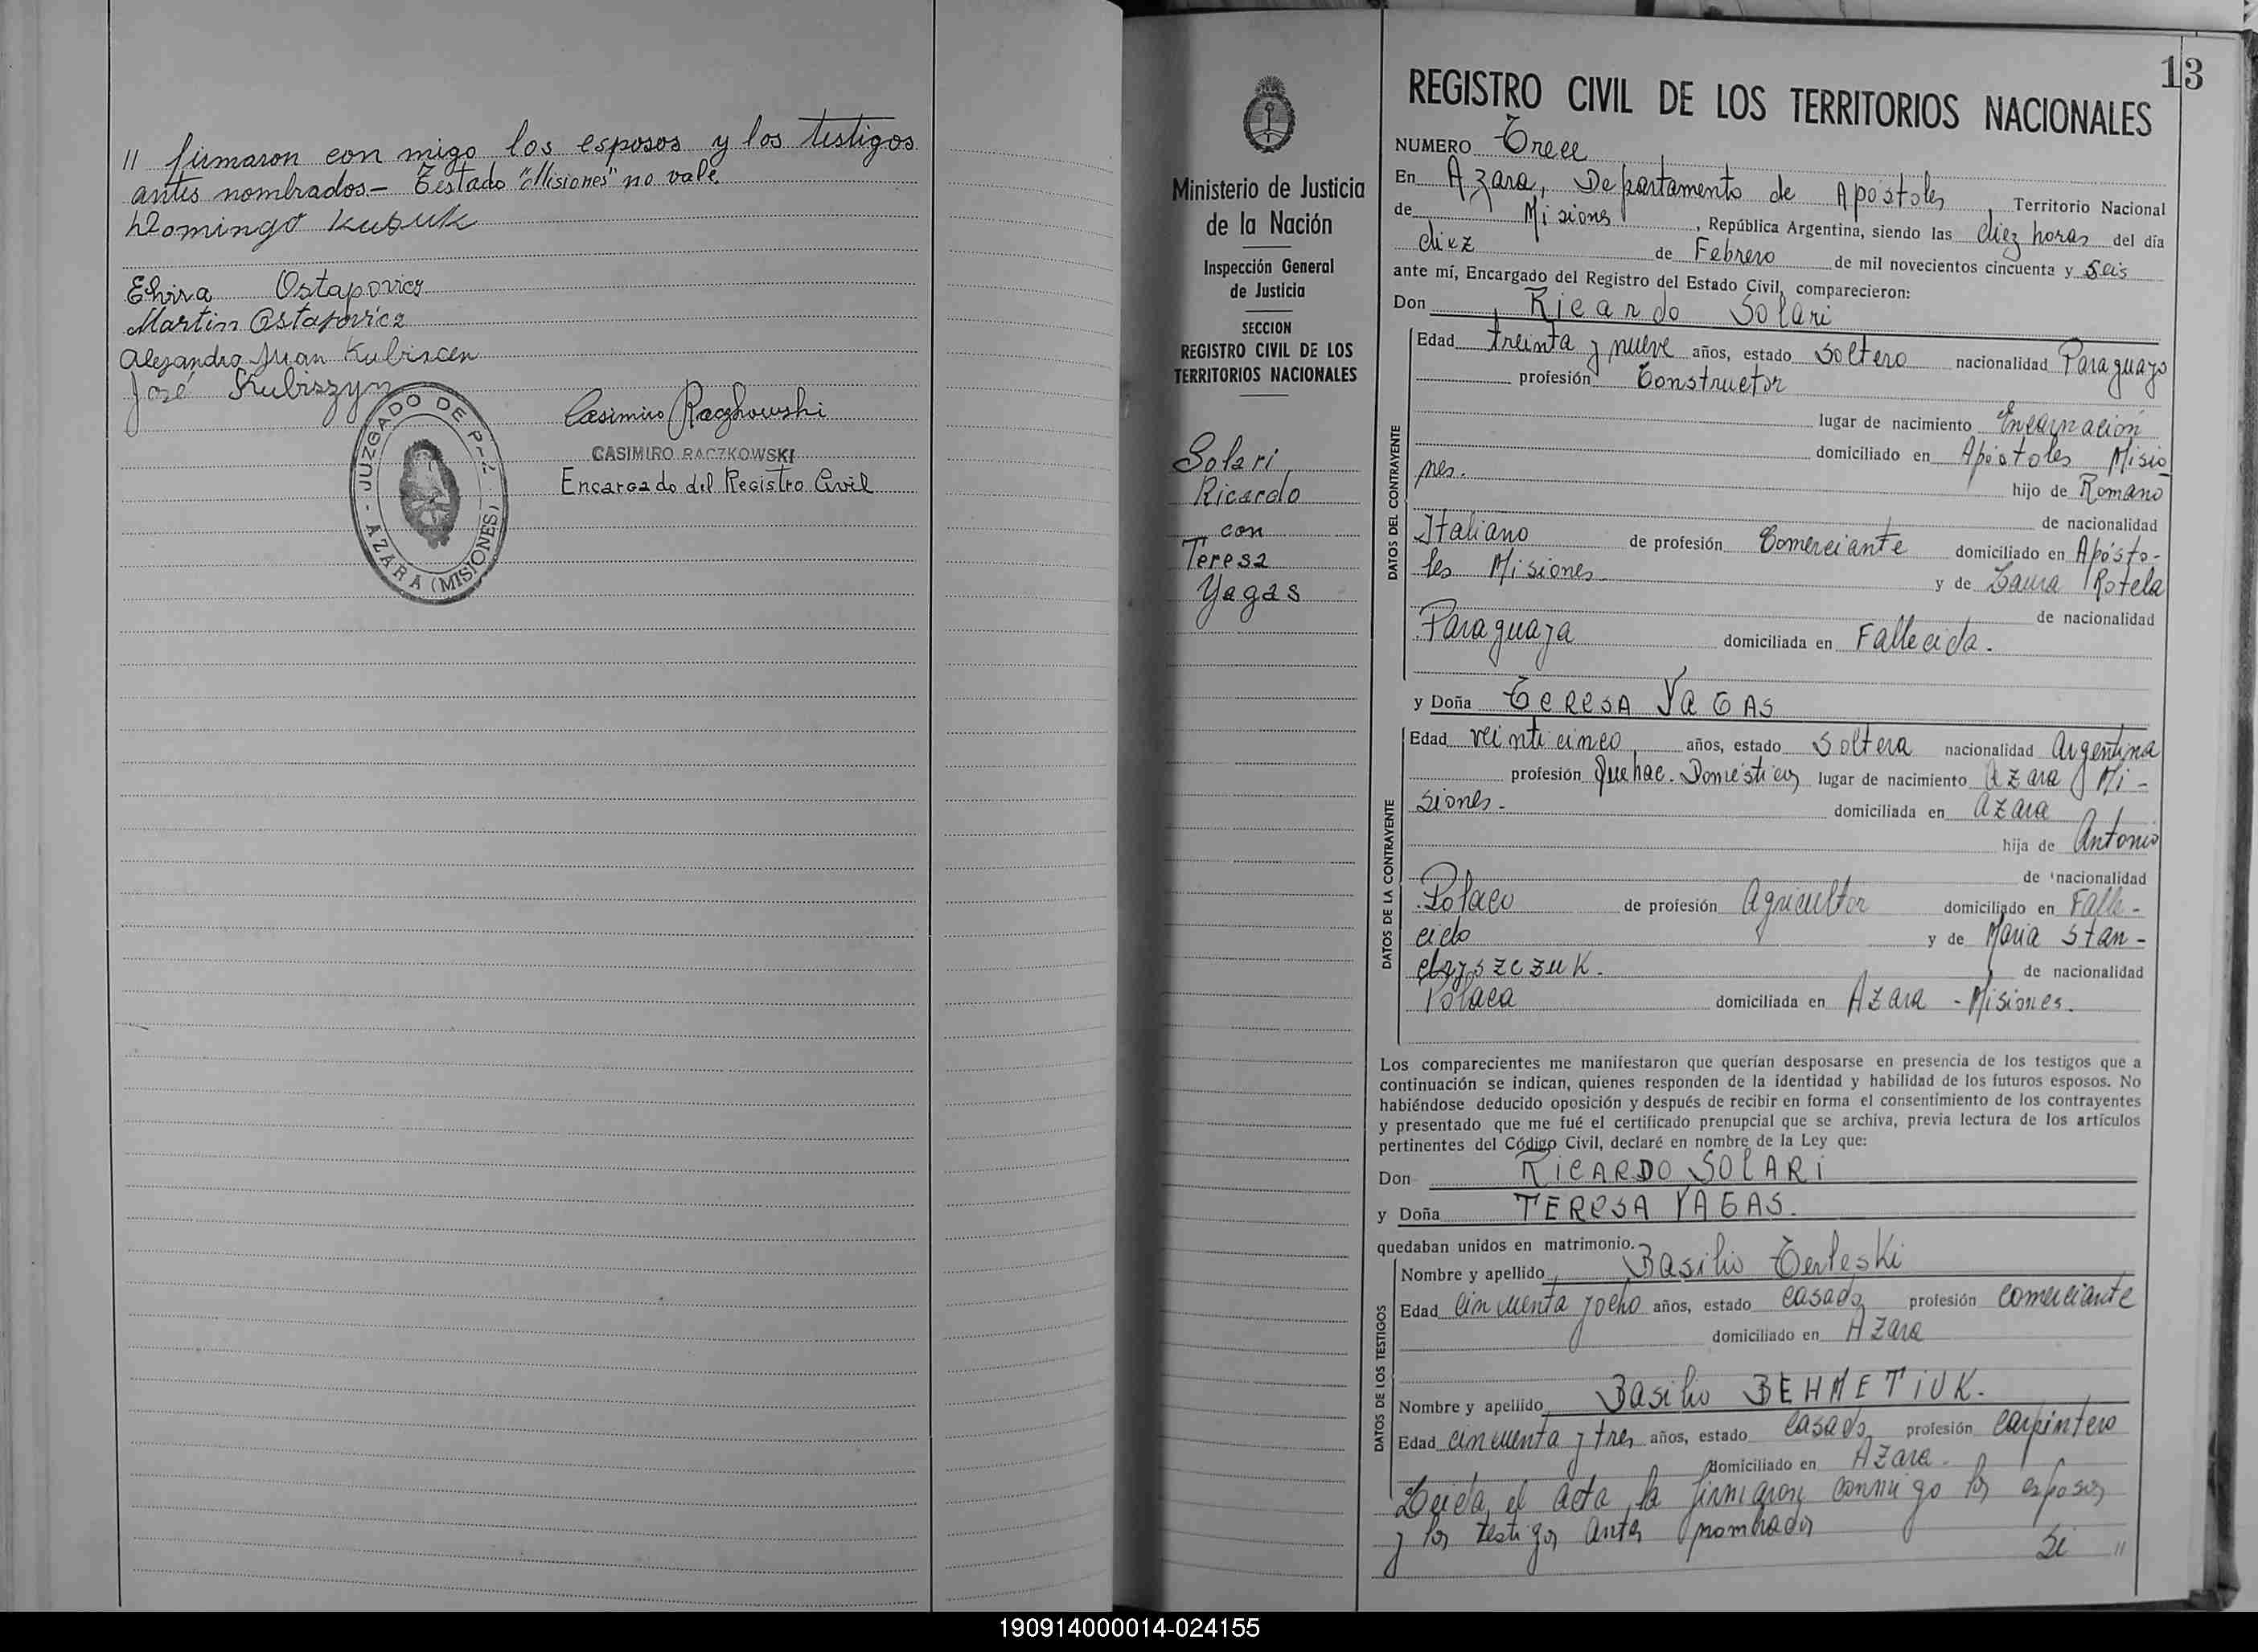 11 firmaron con migo los esposos y los testigos
antes nombrados.- Testado "Misiones" no vale.
Domingo Kubuk
Elvira Ostapovicz
Martin Ostapovicz
Alejandro Juan Kubiscen
José Kubiszyn
JUZGADO DE P-z - AZARA (MISIONES)
Casimiro Raczkowski
CASIMIRO RACZKOWSKI
Encargado del Registro Civil
Ministerio de Justicia
de la Nación
Inspección General
de Justicia
SECCION
REGISTRO CIVIL DE LOS
TERRITORIOS NACIONALES
Solari
Ricardo
con
Teresa
Yagas
13
REGISTRO CIVIL DE LOS TERRITORIOS NACIONALES
NUMERO Trece
En Azara, Departamento de Apostoles, Territorio Nacional
de Misiones, República Argentina, siendo las diez horas del día
diez de Febrero de mil novecientos cincuenta y seis
ante mí, Encargado del Registro del Estado Civil, comparecieron:
Don Ricardo Solari
DATOS DEL CONTRAYENTE
Edad treinta y nueve años, estado soltero nacionalidad Paraguayo
profesión Constructor
lugar de nacimiento Encarnación
domiciliado en Apóstoles Misio
nes. hijo de Romano
de nacionalidad
Italiano de profesión Comerciante domiciliado en Apósto-
les Misiones y de Laura Rotela
de nacionalidad
Paraguaya domiciliada en Fallecida.
y Doña TERESA YAGAS
DATOS DE LA CONTRAYENTE
Edad veinticinco años, estado Soltera nacionalidad Argentina
profesión Quehac. Domésticos lugar de nacimiento Azara Mi-
siones.- domiciliada en Azara
hija de Antonio
de nacionalidad
Polaco de profesión Agricultor domiciliado en Falle-
cido y de Maria Stan-
dryszczuk. de nacionalidad
Polaca domiciliada en Azara - Misiones.
Los comparecientes me manifestaron que querían desposarse en presencia de los testigos que a
continuación se indican, quienes responden de la identidad y habilidad de los futuros esposos. No
habiéndose deducido oposición y después de recibir en forma el consentimiento de los contrayentes
y presentado que me fué el certificado prenupcial que se archiva, previa lectura de los artículos
pertinentes del Código Civil, declaré en nombre de la Ley que:
Don RICARDO SOLARI
y Doña TERESA YAGAS.
quedaban unidos en matrimonio.
DATOS DE LOS TESTIGOS
Nombre y apellido Basilio Terleski
Edad cincuenta y ocho años, estado casado profesión comerciante
domiciliado en Azara
Nombre y apellido Basilio BEHMETIUK.
Edad cincuenta y tres años, estado casado profesión carpintero
domiciliado en Azara.
Leida el acta la firmaron conmigo los esposos
y los testigos antes nombrados Si "
190914000014-024155